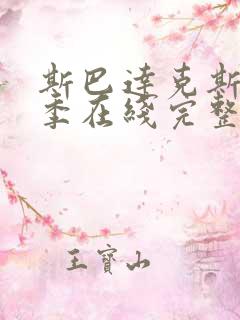 斯巴達克斯
季在綫完整
王寶山